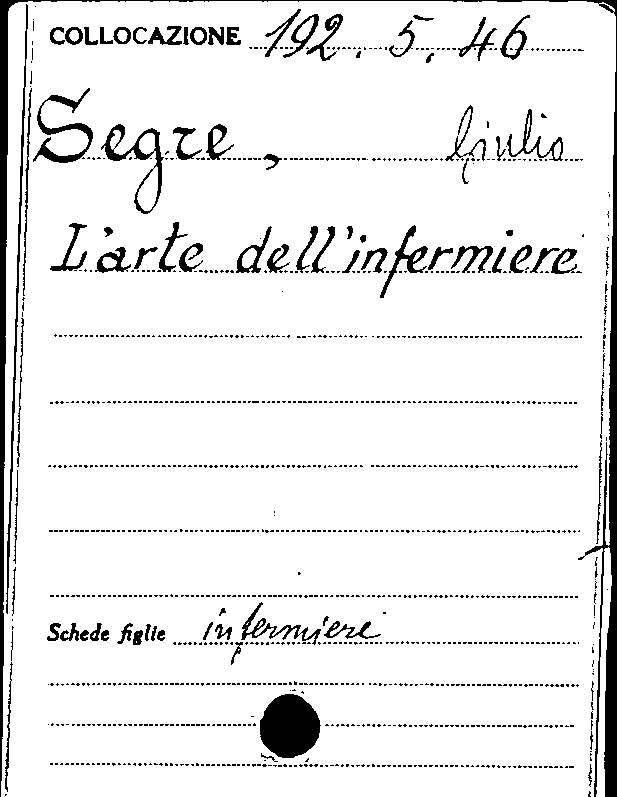 COLLOCAZIONE 192. 5. 46
Segre, Giulio
L'arte dell'infermiere
Schede figlie infermiere